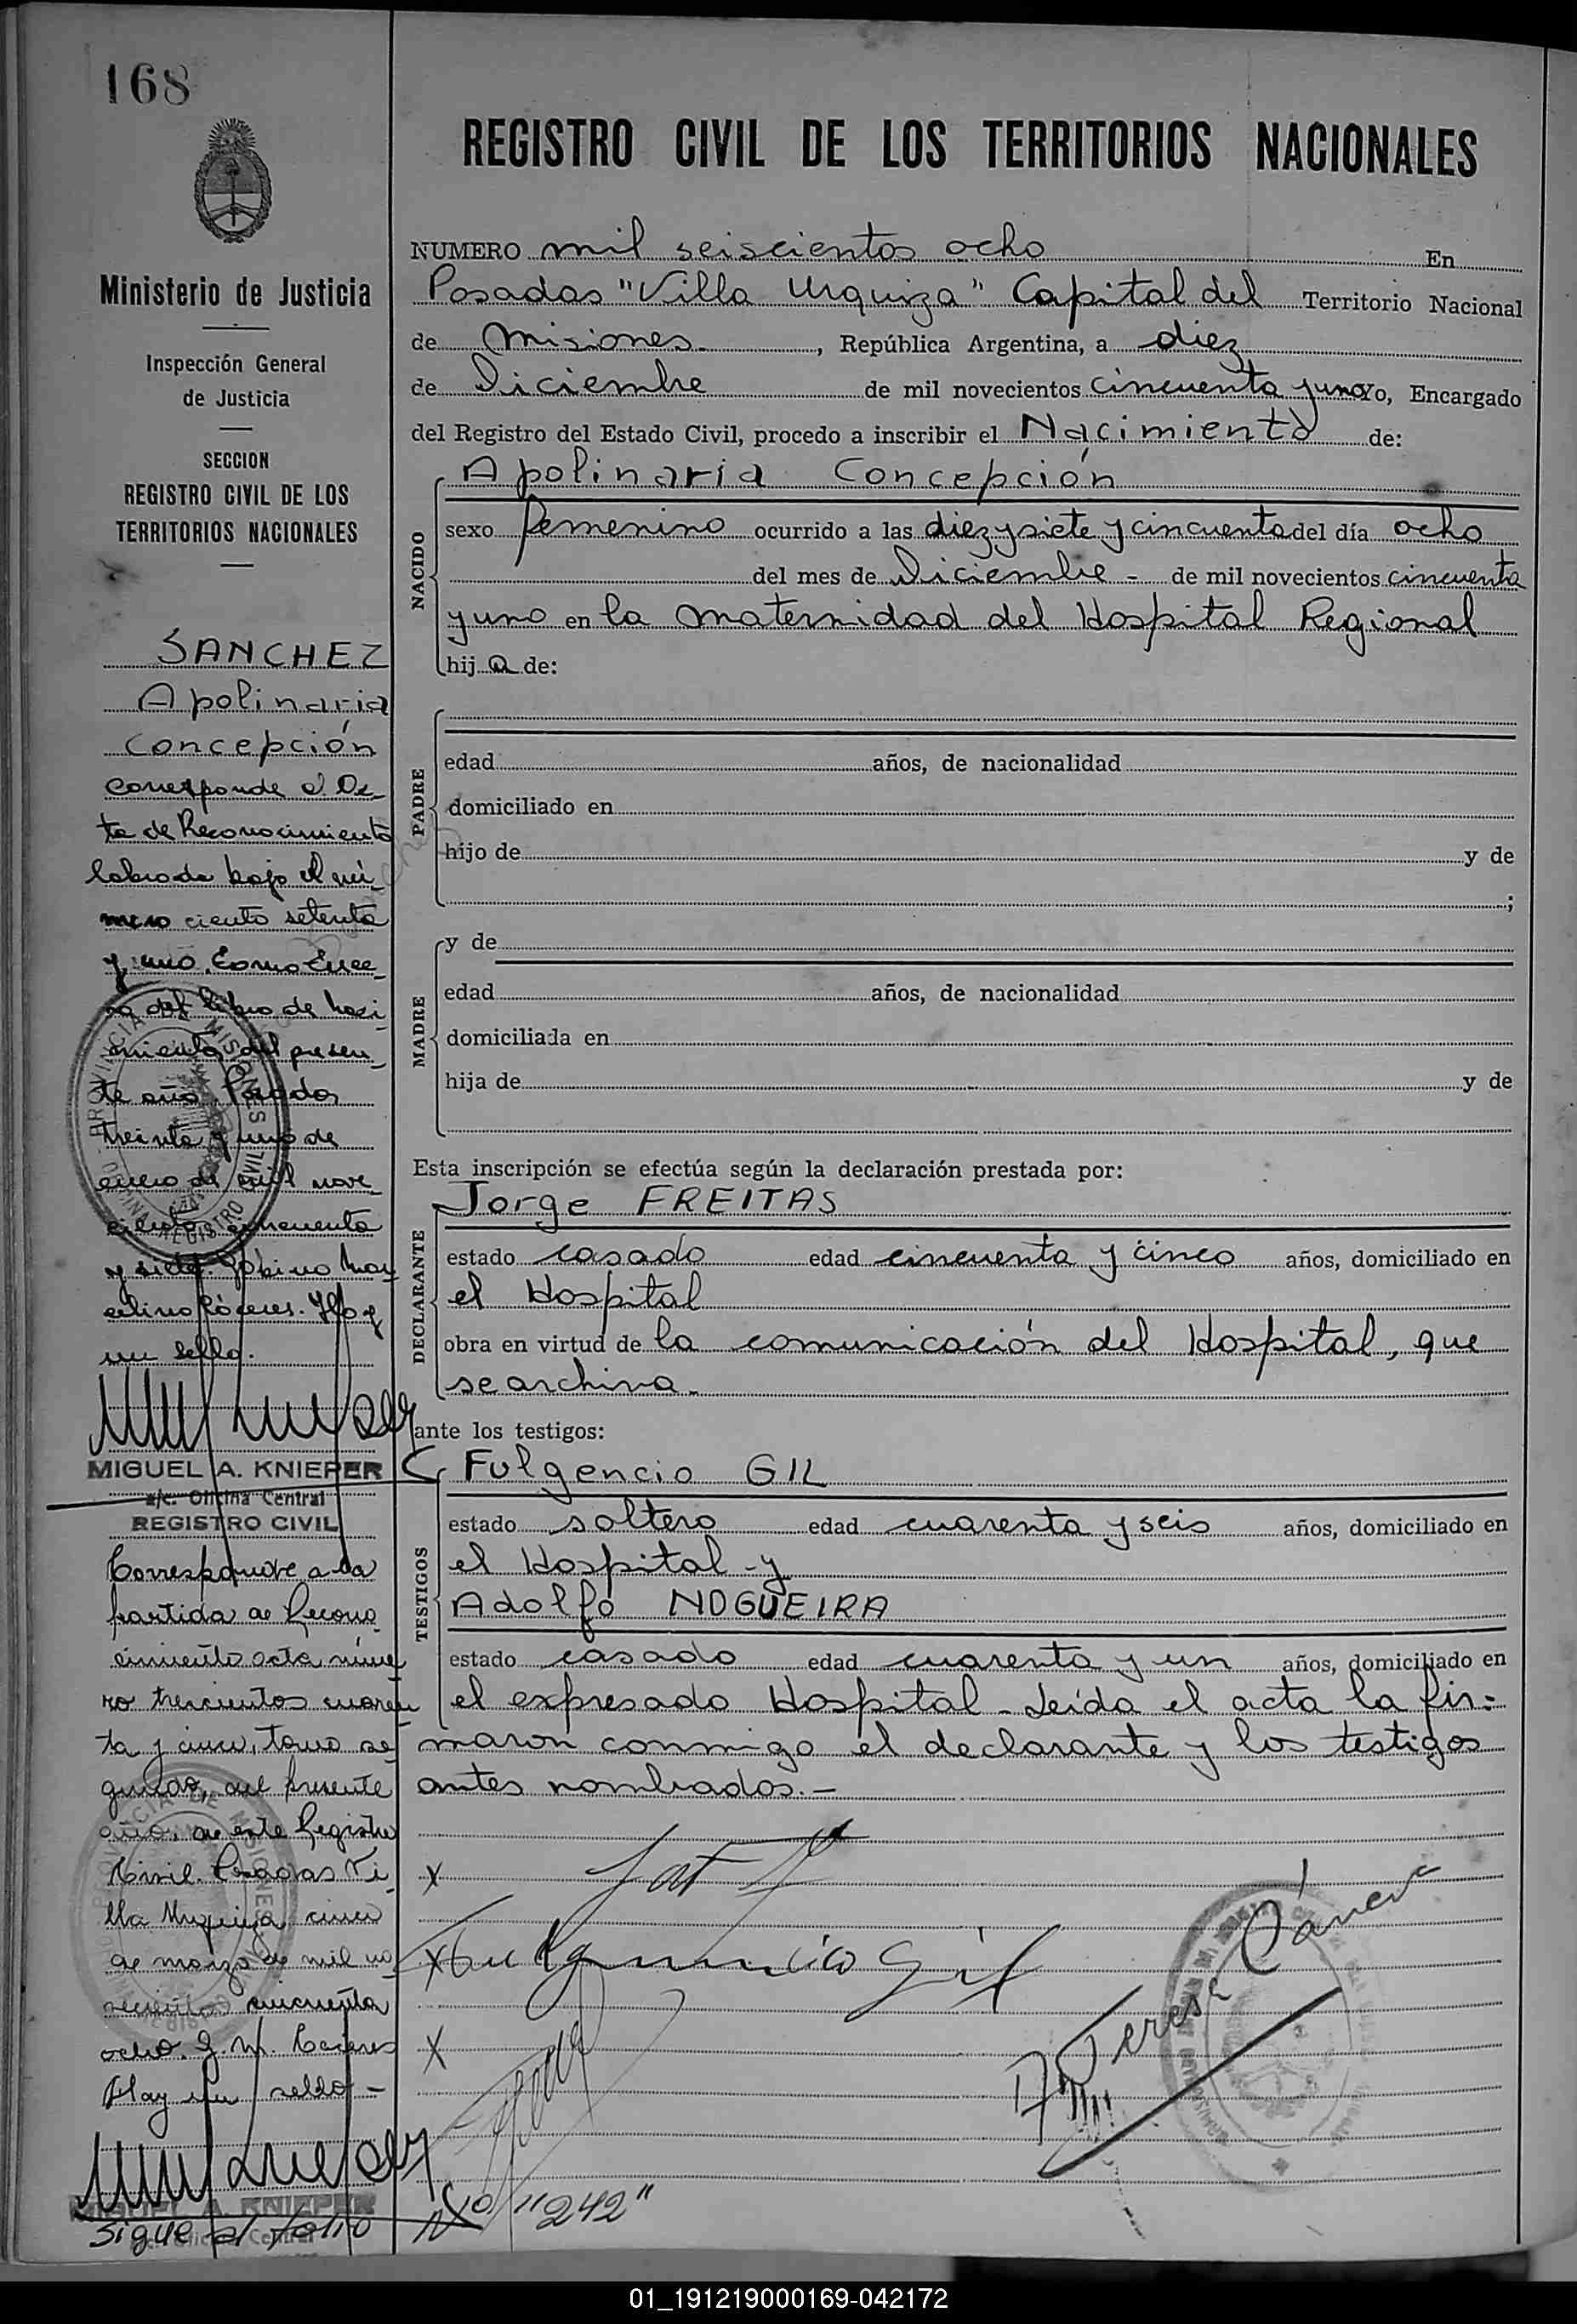 168
REGISTRO CIVIL DE LOS TERRITORIOS NACIONALES
Ministerio de Justicia
Inspección General
de Justicia
SECCION
REGISTRO CIVIL DE LOS
TERRITORIOS NACIONALES
SANCHEZ
Apolinaria
Concepción
Corresponde al Ac-
ta de Reconocimiento
labrada bajo el nú-
mero ciento setenta
y uno, Tomo
del libro de Naci-
mientos del presen-
te año. Posadas
treinta y uno de
enero de mil nove-
cientos cincuenta
y siete. Gabino Mar-
celino Cáceres. Hay
un sello.
MIGUEL A. KNIEPER
a/c. Oficina Central
REGISTRO CIVIL
Corresponde a la
partida de Recono-
cimiento acta núme-
ro trescientos cuaren-
ta y cinco, tomo se-
gundo, del presente
año, de este Registro
Civil. Posadas Vi-
lla Urquiza, cinco
de marzo de mil no-
vecientos cincuenta
ocho. G. M. Cáceres
Hay un sello -
MIGUEL A. KNIEPER
Sigue al folio Nº "242"
NUMERO mil seiscientos ocho En
Posadas "Villa Urquiza" Capital del Territorio Nacional
de Misiones, República Argentina, a diez
de Diciembre de mil novecientos cincuenta y uno yo, Encargado
del Registro del Estado Civil, procedo a inscribir el Nacimiento de:
Apolinaria Concepción
NACIDO
sexo femenino ocurrido a las diez y siete y cincuenta del día ocho
del mes de Diciembre - de mil novecientos cincuenta
y uno en la maternidad del Hospital Regional
hija de:
PADRE
edad años, de nacionalidad
domiciliado en
hijo de y de
;
MADRE
y de
edad años, de nacionalidad
domiciliada en
hija de y de
Esta inscripción se efectúa según la declaración prestada por:
Jorge FREITAS
DECLARANTE
estado casado edad cincuenta y cinco años, domiciliado en
el Hospital
obra en virtud de la comunicación del Hospital, que
se archiva.
ante los testigos:
Fulgencio GIL
TESTIGOS
estado soltero edad cuarenta y seis años, domiciliado en
el Hospital - y
Adolfo NOGUEIRA
estado casado edad cuarenta y un años, domiciliado en
el expresado Hospital - Leída el acta la fir-
maron conmigo el declarante y los testigos
antes nombrados. -
x
x Fulgencio Gil
x
Teresa
01_191219000169-042172